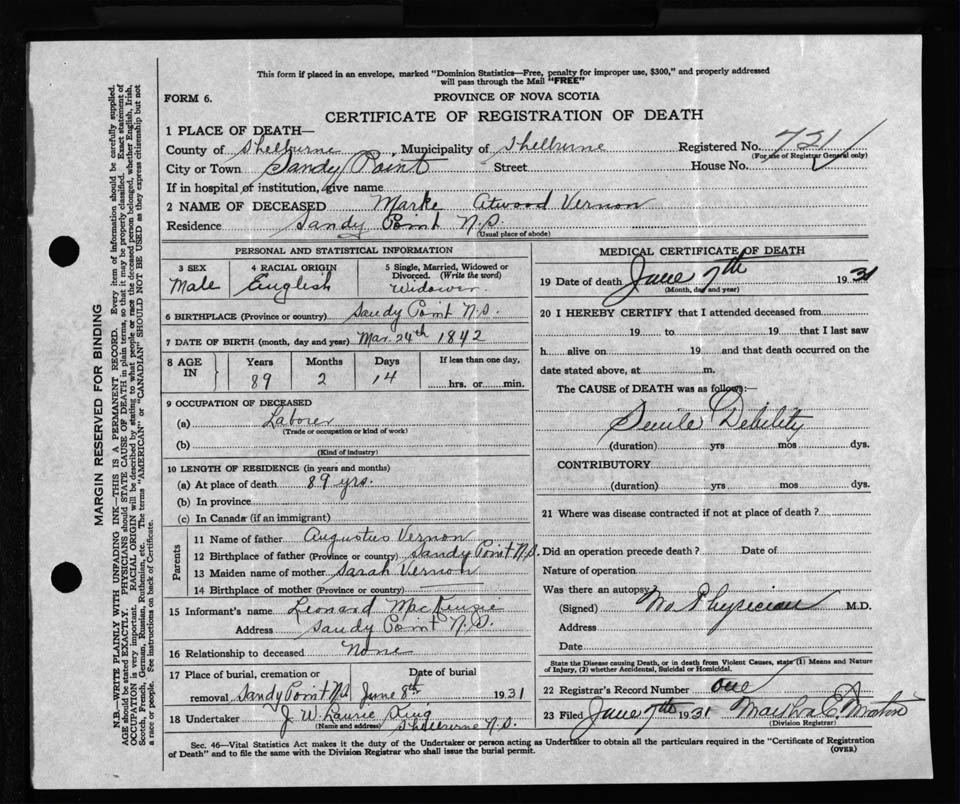 This form if placed in an envelope, marked "Dominion Statistics—Free, penalty for improper use, $300," and properly addressed
will pass through the Mail "FREE"
FORM 6.
PROVINCE OF NOVA SCOTIA
CERTIFICATE OF REGISTRATION OF DEATH
1 PLACE OF DEATH—
County of Shelburne, Municipality of Shelburne Registered No. 721
(For use of Registrar General only)
City or Town Sandy Point Street House No.
If in hospital or institution, give name
2 NAME OF DECEASED Marke Atwood Vernon
Residence Sandy Point N.S.
(Usual place of abode)
MARGIN RESERVED FOR BINDING
N.B.—WRITE PLAINLY WITH UNFADING INK—THIS IS A PERMANENT RECORD. Every item of information should be carefully supplied.
AGE should be stated EXACTLY. PHYSICIANS should STATE CAUSE OF DEATH in plain terms, so that it may be properly classified. Exact statement of
OCCUPATION is very important. RACIAL ORIGIN will be described by stating to what people or race the deceased person belonged, whether English, Irish,
Scotch, French, German, Russian, Ruthenian, etc. The terms "AMERICAN" or "CANADIAN" SHOULD NOT BE USED as they express citizenship but not
a race or people. See instructions on back of Certificate.
PERSONAL AND STATISTICAL INFORMATION
3 SEX
Male
4 RACIAL ORIGIN
English
5 Single, Married, Widowed or
Divorced. (Write the word)
Widower.
6 BIRTHPLACE (Province or country) Sandy Point N.S.
7 DATE OF BIRTH (month, day and year) Mar. 24th 1842
8 AGE
IN
Years
89
Months
2
Days
14
If less than one day,
hrs. or min.
9 OCCUPATION OF DECEASED
(a) Laborer
(Trade or occupation or kind of work)
(b)
(Kind of industry)
10 LENGTH OF RESIDENCE (in years and months)
(a) At place of death 89 yrs.
(b) In province
(c) In Canada (if an immigrant)
Parents
11 Name of father Augustus Vernon
12 Birthplace of father (Province or country) Sandy Point N.S.
13 Maiden name of mother Sarah Vernon
14 Birthplace of mother (Province or country)
15 Informant's name Leonard MacKenzie
Address Sandy Point N.S.
16 Relationship to deceased None
17 Place of burial, cremation or Date of burial
removal Sandy Point N.S. June 8th 1931
18 Undertaker J. W. Laurie King
(Name and address) Shelburne N.S.
MEDICAL CERTIFICATE OF DEATH
19 Date of death June 7th 1931
(Month, day and year)
20 I HEREBY CERTIFY that I attended deceased from
19 to 19 that I last saw
h alive on 19 and that death occurred on the
date stated above, at m.
The CAUSE of DEATH was as follows:—
Senile Debility
(duration) yrs mos dys.
CONTRIBUTORY
(duration) yrs mos dys.
21 Where was disease contracted if not at place of death?
Did an operation precede death? Date of
Nature of operation
Was there an autopsy
(Signed) No Physician M.D.
Address
Date
State the Disease causing Death, or in death from Violent Causes, state (1) Means and Nature
of Injury, (2) whether Accidental, Suicidal or Homicidal.
22 Registrar's Record Number one
23 Filed June 7th 1931 Martha E.
(Division Registrar)
Sec. 46—Vital Statistics Act makes it the duty of the Undertaker or person acting as Undertaker to obtain all the particulars required in the "Certificate of Registration
of Death" and to file the same with the Division Registrar who shall issue the burial permit.
(OVER)